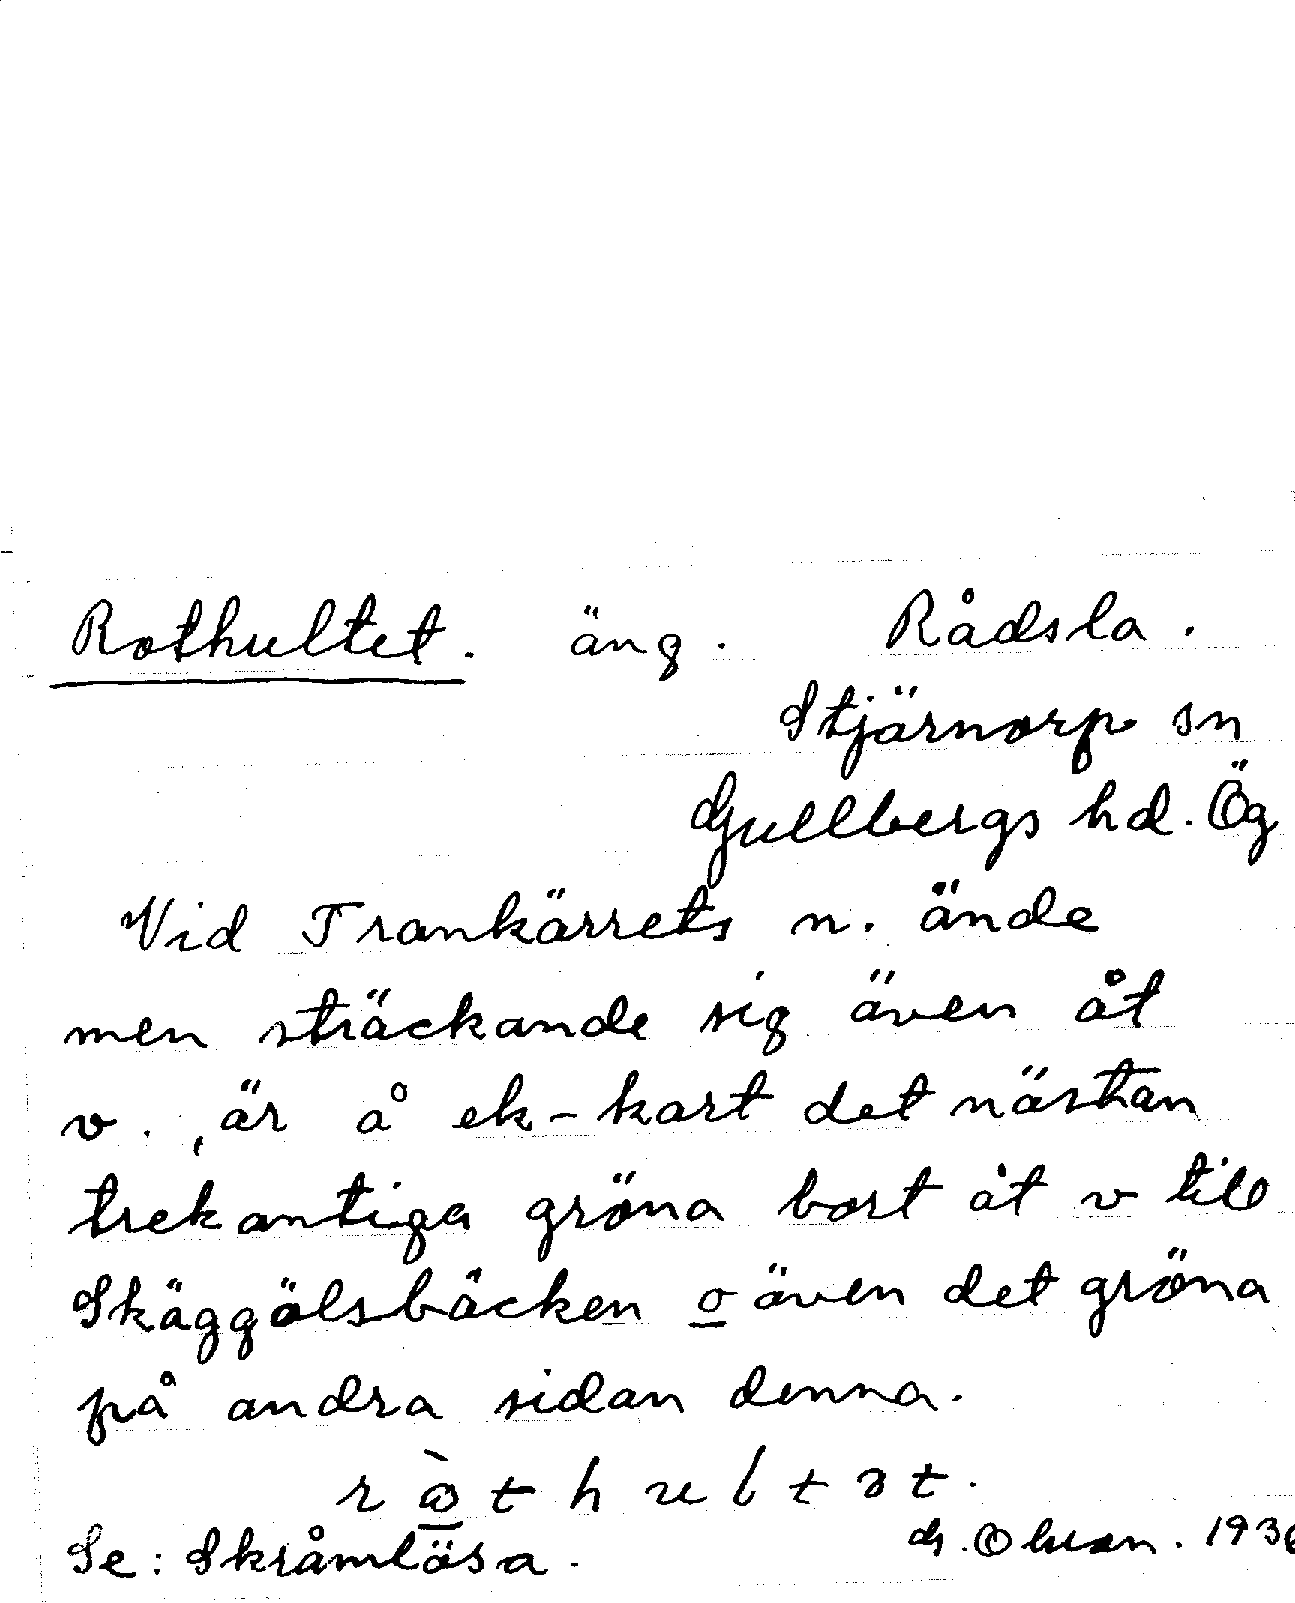 Rothultet. äng. Rådsla.
Stjärnorp sn
Gullbergs hd. Ög
Vid Trankärrets n. ände
men sträckande sig även åt
v., är å ek-kart det nästan
trekantiga gröna bort åt v till
Skäggölsbäcken o även det gröna
på andra sidan denna.
Se: Skråmlösa. G. Olson. 1936